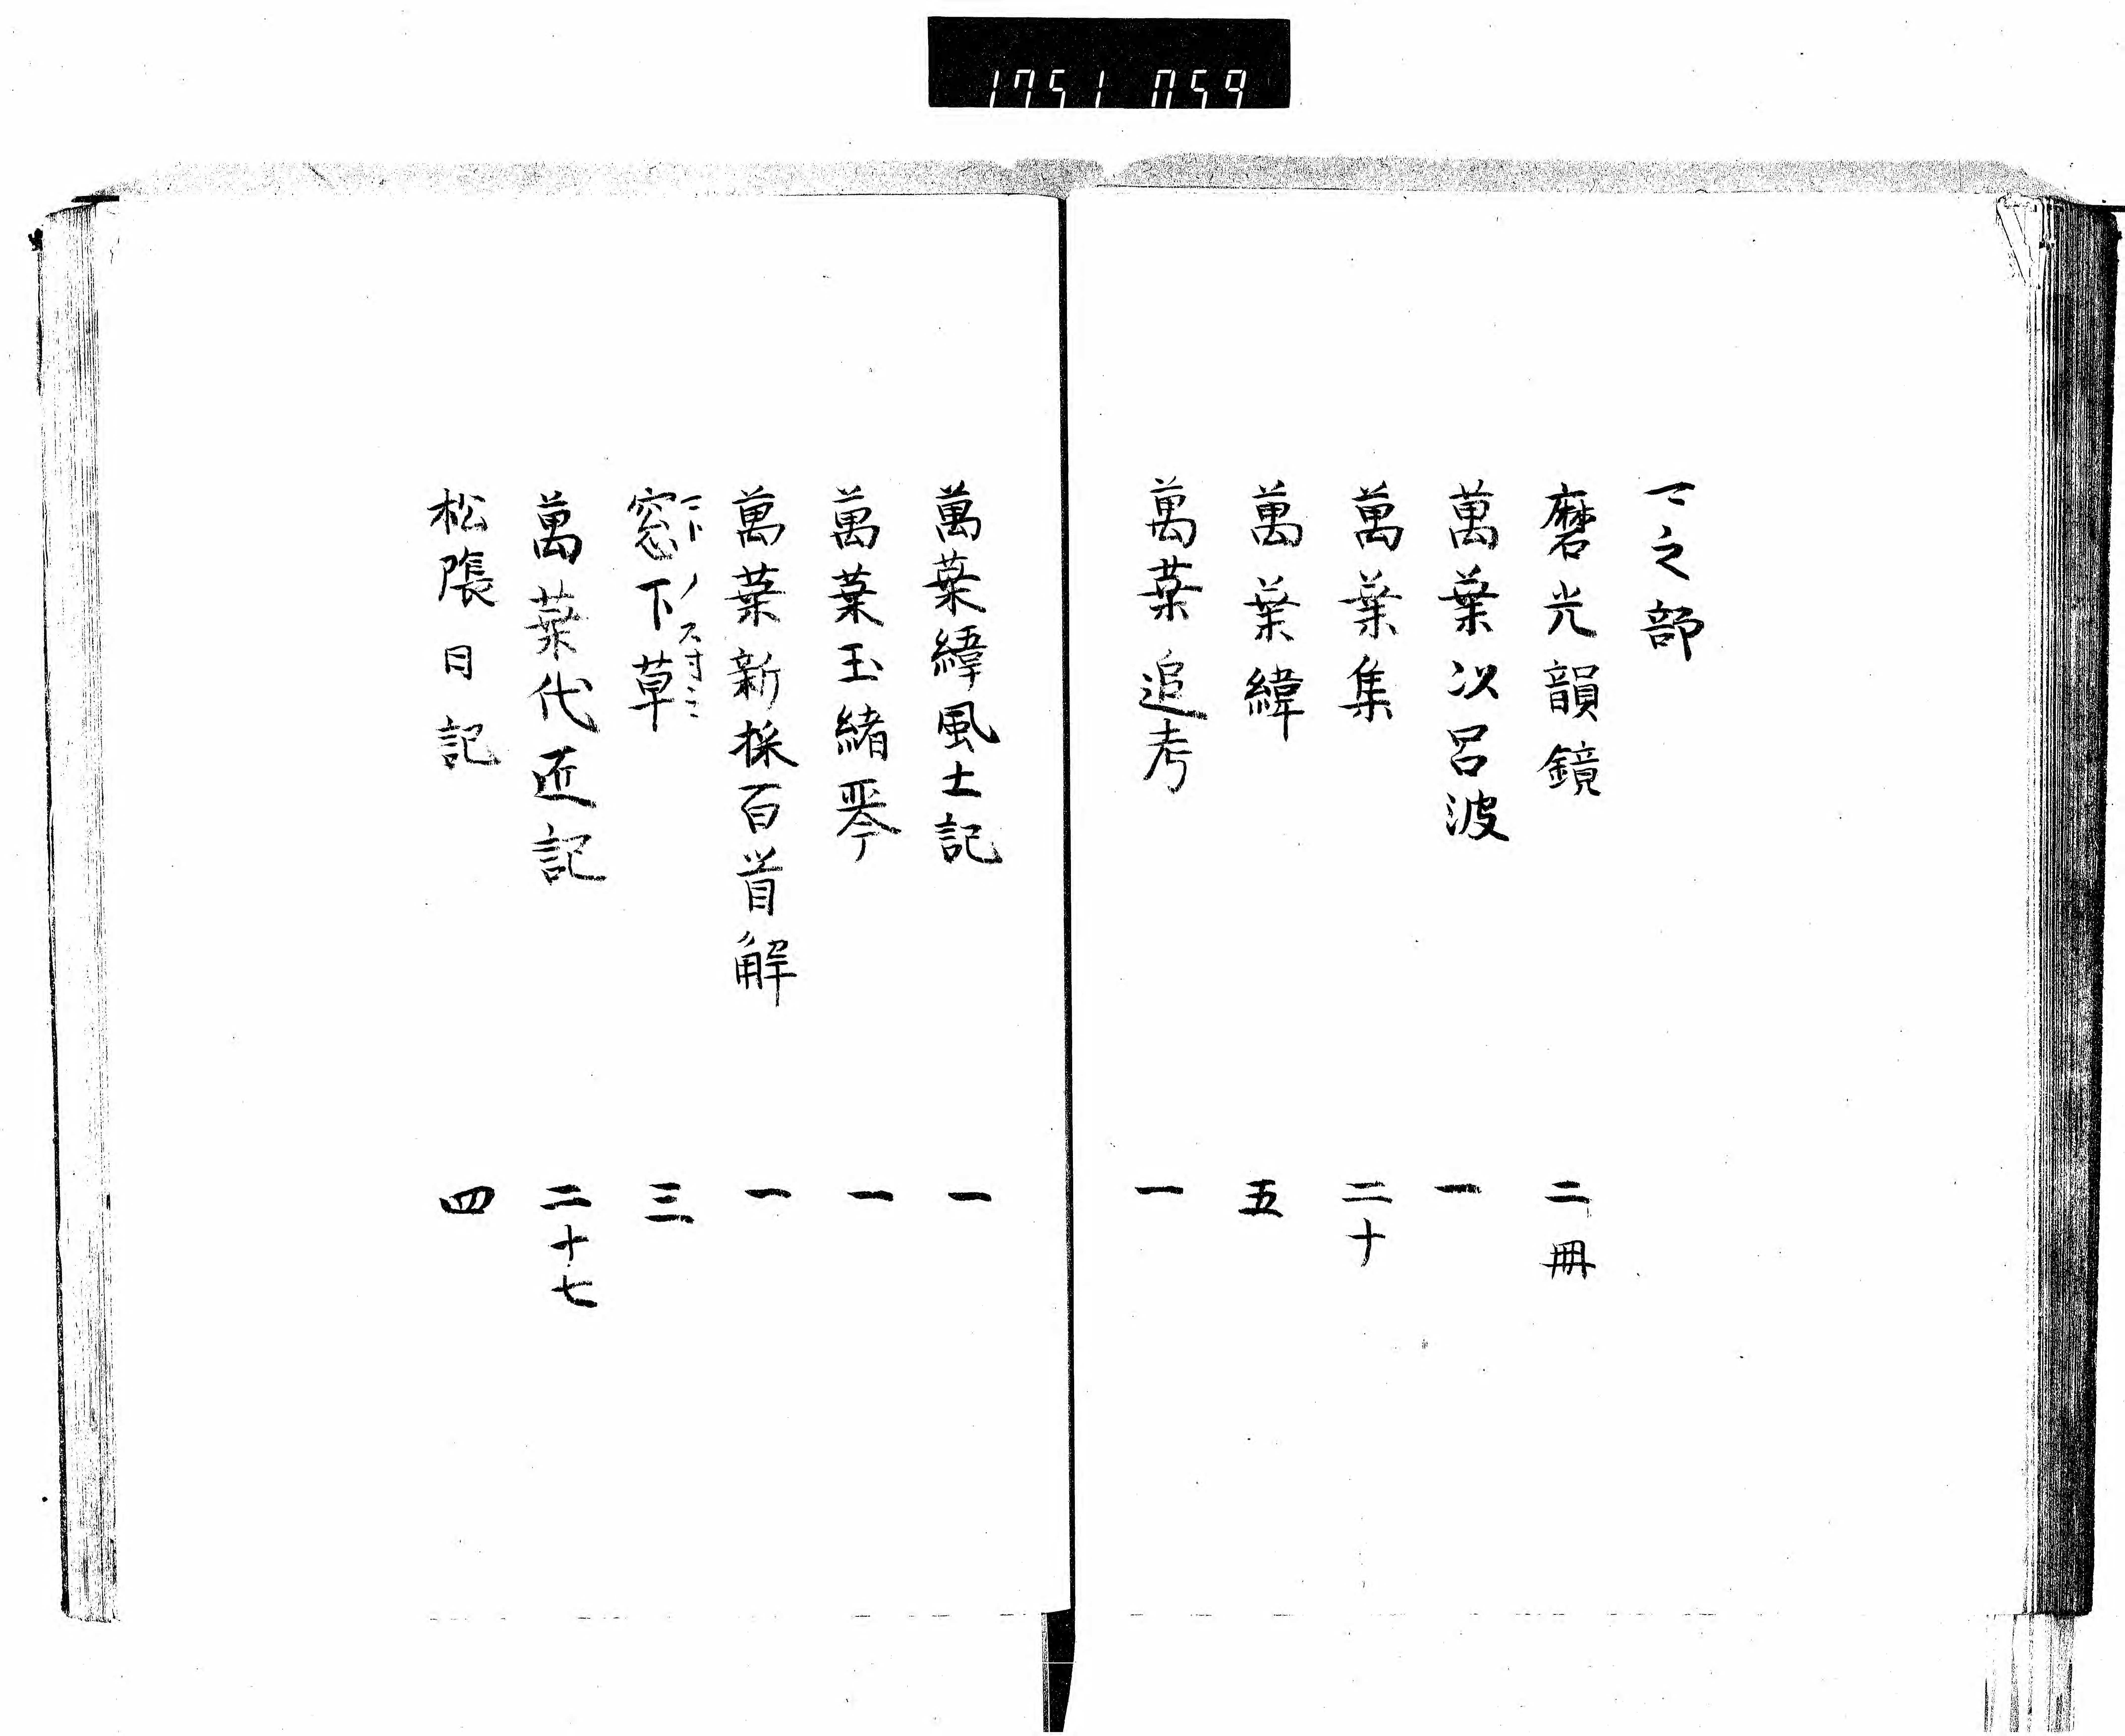 1751 059
マ之部
磨光韻鏡 二冊
萬葉以呂波 一
萬葉集 二十
萬葉緯 五
萬葉追考 一
萬葉緯風土記 一
萬葉玉緒琴 一
萬葉新採百首解 一
窓下草 三
萬葉代匠記 二十七
松陰日記 四